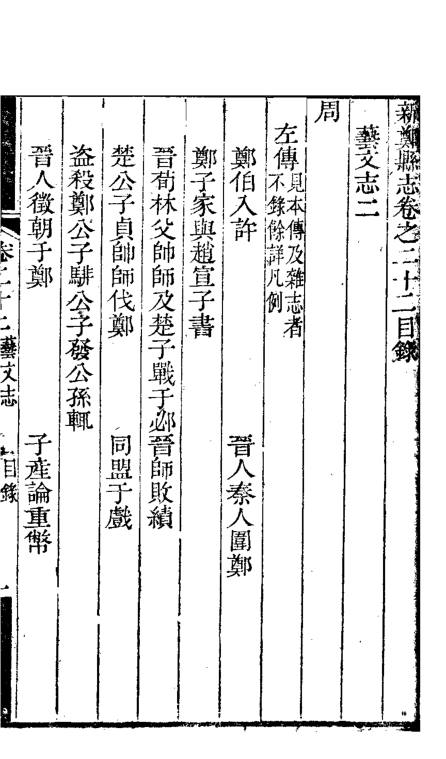 新鄭縣志卷之二十二目錄
藝文志二
周
左傳見本傳及雜志者
不錄餘詳凡例
鄭伯入許　晉人秦人圍鄭
鄭子家與趙宣子書
晉荀林父帥師及楚子戰于邲晉師敗績
楚公子貞帥師伐鄭　同盟于戲
盜殺鄭公子騑公子發公孫輒
晉人徵朝于鄭　子產論重幣
卷二十二藝文志　目錄　一